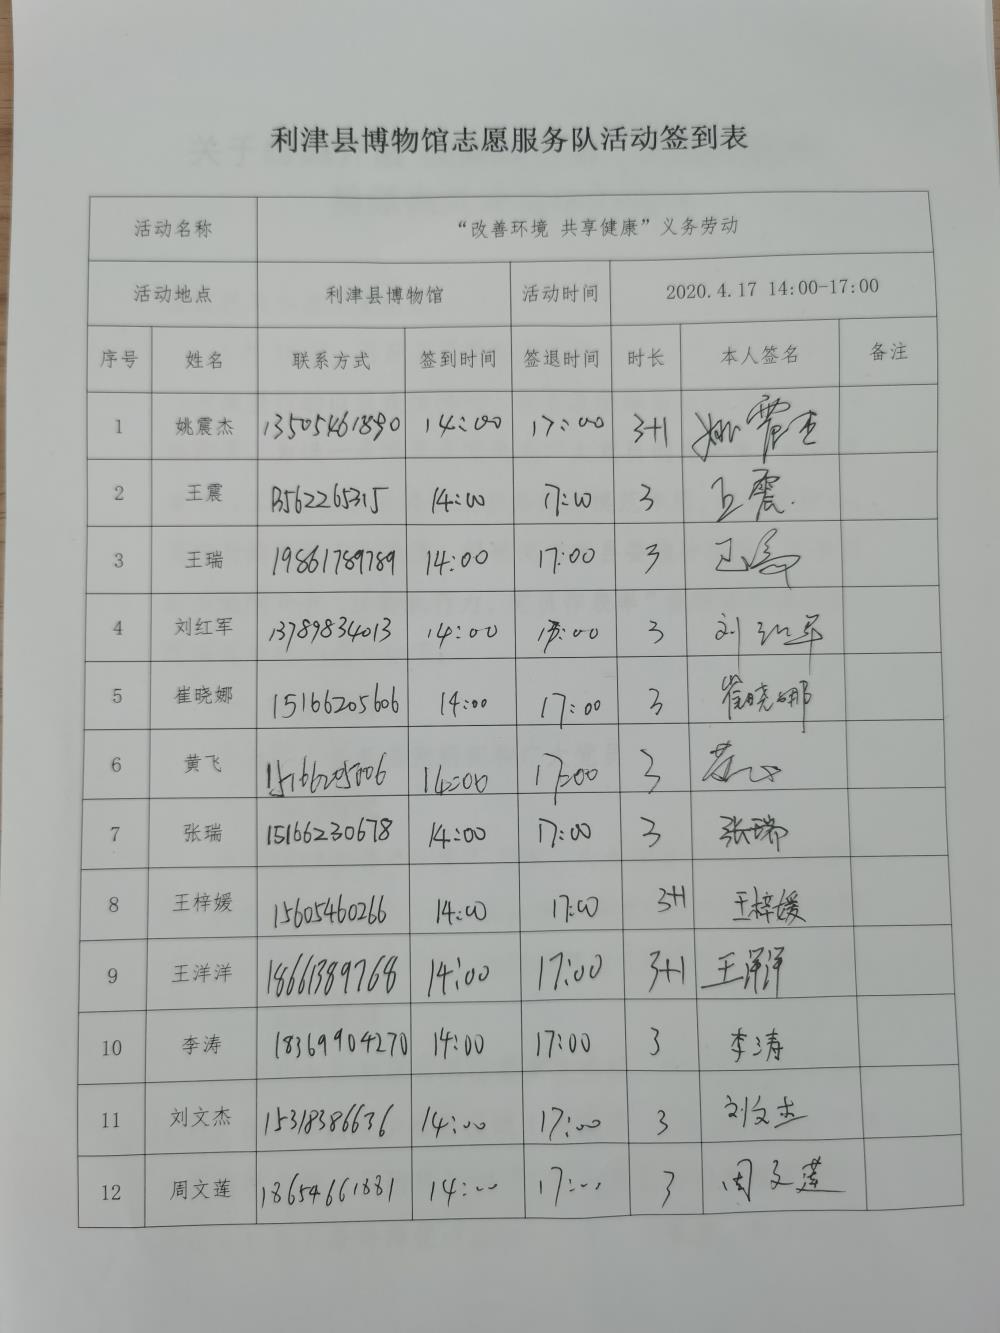 利津县博物馆志愿服务队活动签到表
活动名称 “改善环境 共享健康”义务劳动
活动地点 利津县博物馆 活动时间 2020.4.17 14:00-17:00
序号 姓名 联系方式 签到时间 签退时间 时长 本人签名 备注
1 姚震杰 13505461890 14:00 17:00 3+1 姚震杰
2 王震 13562265315 14:00 17:00 3 王震
3 王瑞 19861789789 14:00 17:00 3
4 刘红军 13789834013 14:00 17:00 3 刘红军
5 崔晓娜 15166205606 14:00 17:00 3 崔晓娜
6 黄飞 14:00 17:00 3
7 张瑞 15166230678 14:00 17:00 3 张瑞
8 王梓媛 15605460266 14:00 17:00 3+1 王梓媛
9 王洋洋 18661389768 14:00 17:00 3+1 王洋洋
10 李涛 18369904270 14:00 17:00 3 李涛
11 刘文杰 15318386636 14:00 17:00 3 刘文杰
12 周文莲 18654661881 14:00 17:00 3 周文莲